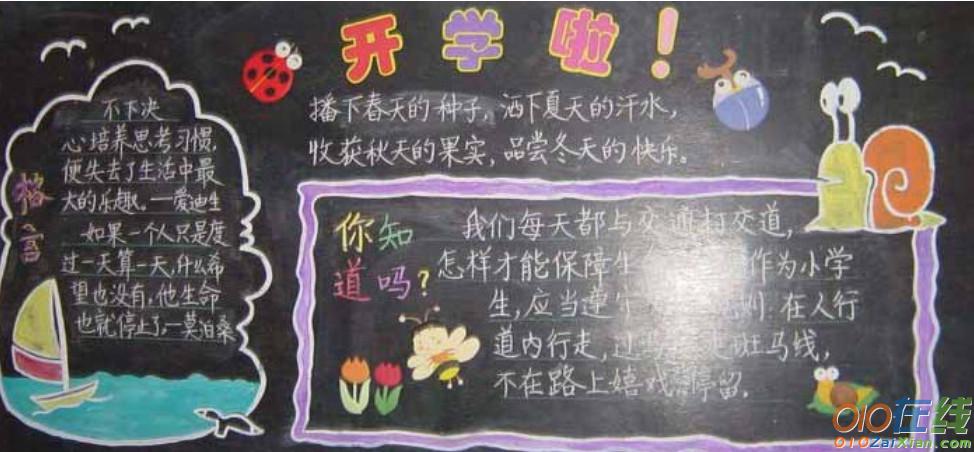 开学啦！
播下春天的种子，洒下夏天的汗水，
收获秋天的果实，品尝冬天的快乐。
格言
不下决
心培养思考习惯，
便失去了生活中最
大的乐趣。一爱迪生
如果一个人只是度
过一天算一天，什么希
望也没有，他生命
也就停止了，一莫泊桑
你知
道吗？
我们每天都与交通打交道，
怎样才能保障生 作为小学
生，应当遵守 则：在人行
道内行走，过 斑马线，
不在路上嬉戏 停留．
010在线
010ZaiXian.com